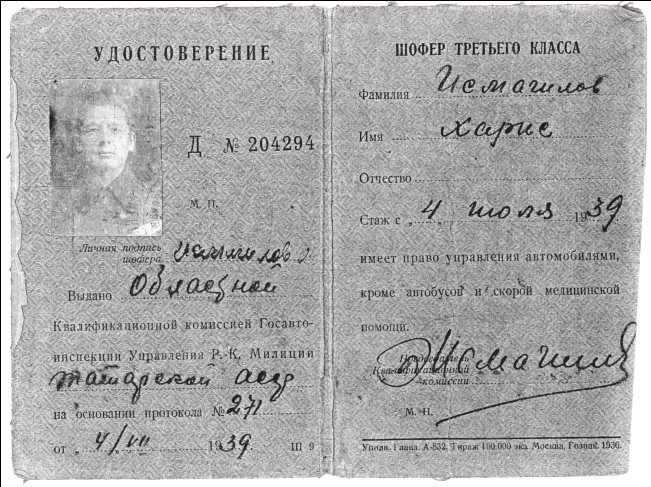 УДОСТОВЕРЕНИЕ
Д № 204294
М. П.
Личная подпись
шофера
Выдано Областной
Квалификационной комиссией Госавто-
инспекции Управления Р.-К. Милиции
татарской асср
на основании протокола № 271
от „ 4/VII 1939 Ш 9
ШОФЕР ТРЕТЬЕГО КЛАССА
Фамилия Исмагилов
Имя Харис
Отчество
Стаж с „ 4 „ июля 1939
имеет право управления автомобилями,
кроме автобусов и скорой медицинской
помощи.
Председатель
Квалификационной
комиссии
М. П.
Уполн. Главл. А-832. Тираж 100.000 экз. Москва, Гознак. 1936.